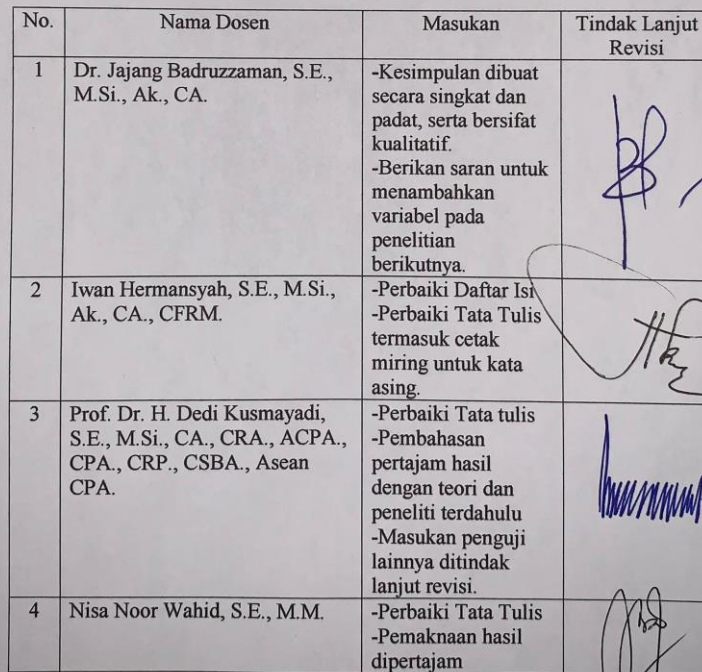 No. Nama Dosen Masukan Tindak Lanjut
Revisi
1 Dr. Jajang Badruzzaman, S.E.,
M.Si., Ak., CA.
-Kesimpulan dibuat
secara singkat dan
padat, serta bersifat
kualitatif.
-Berikan saran untuk
menambahkan
variabel pada
penelitian
berikutnya.
2 Iwan Hermansyah, S.E., M.Si.,
Ak., CA., CFRM.
-Perbaiki Daftar Isi
-Perbaiki Tata Tulis
termasuk cetak
miring untuk kata
asing.
3 Prof. Dr. H. Dedi Kusmayadi,
S.E., M.Si., CA., CRA., ACPA.,
CPA., CRP., CSBA., Asean
CPA.
-Perbaiki Tata tulis
-Pembahasan
pertajam hasil
dengan teori dan
peneliti terdahulu
-Masukan penguji
lainnya ditindak
lanjut revisi.
4 Nisa Noor Wahid, S.E., M.M.
-Perbaiki Tata Tulis
-Pemaknaan hasil
dipertajam